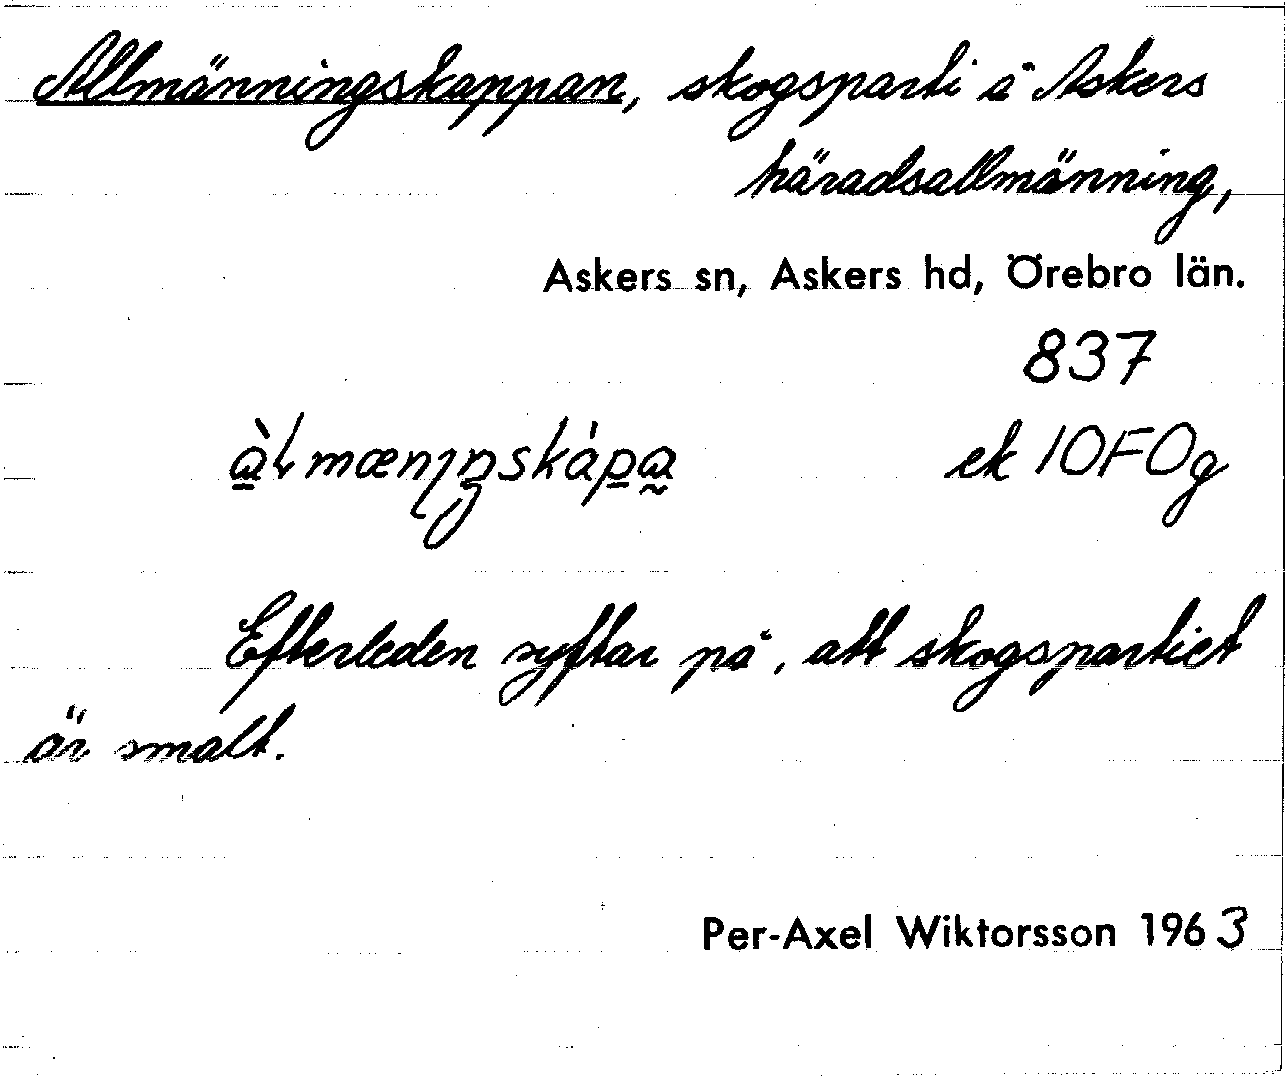 Allmänningskappan, skogsparti å Askers
häradsallmänning,
Askers sn, Askers hd, Örebro län.
837
ek 10F0g
Efterleden syftar på, att skogspartiet
är smalt.
Per-Axel Wiktorsson 1963